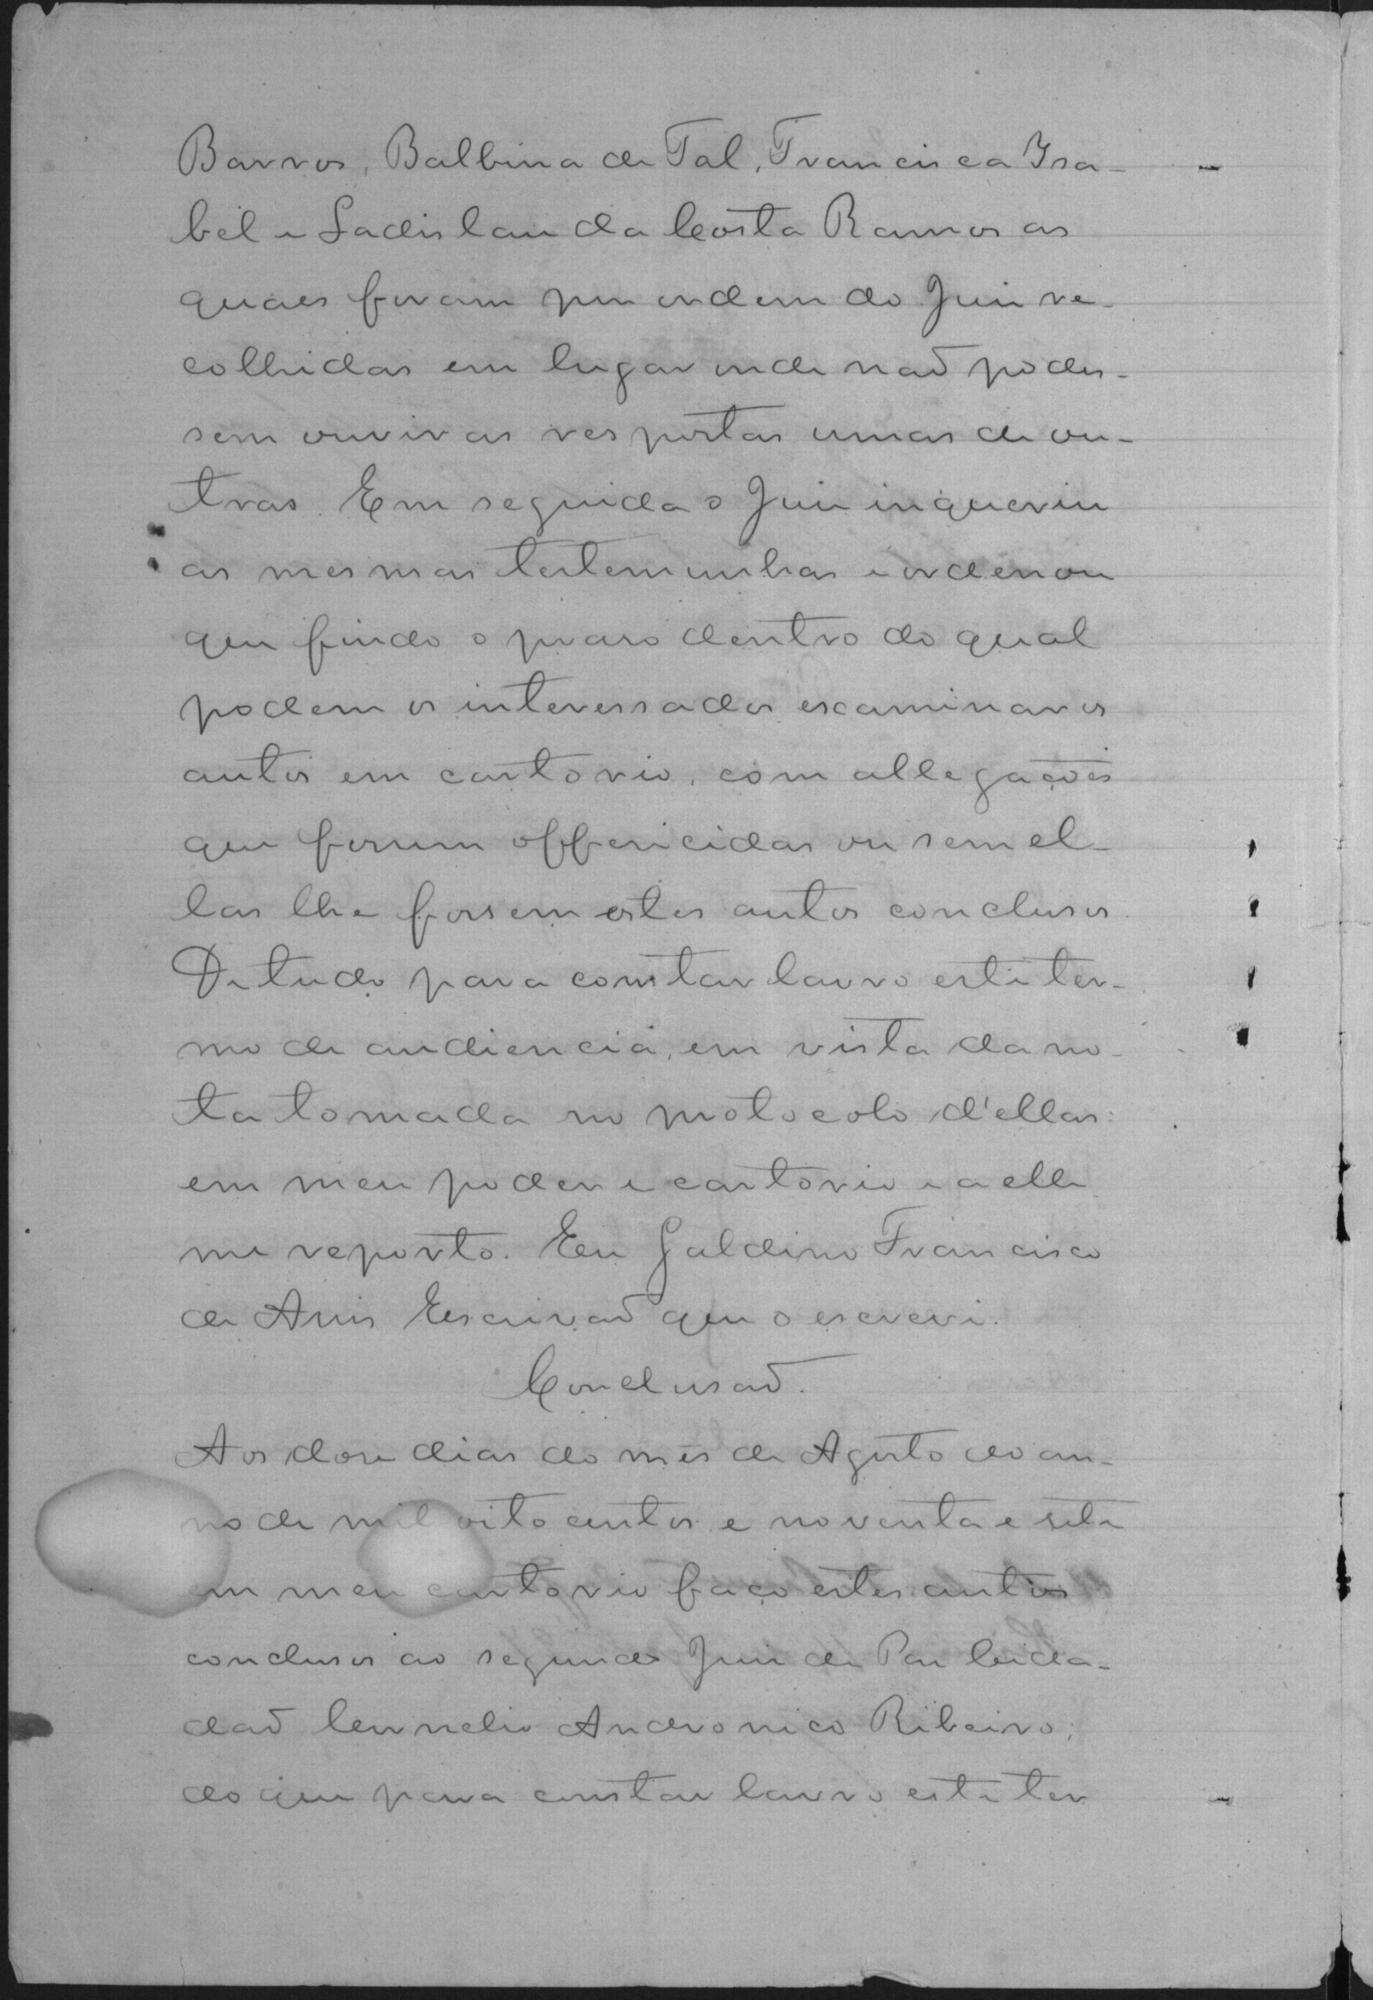 Barros, Balbina de Tal, Francisca Isa-
bel e Ladislau da Costa Ramos as
quaes foram por ordem do Juiz re-
colhidas em lugar onde não podes-
sem ouvir as respostas umas de ou-
tras. Em seguida o Juiz inqueriu
as mesmas testemunhas e ordenou
que findo o praso dentro do qual
podem os interessados examinar os
autos em cartorio, com allegações
que forem offericidas ou sem el-
las lhe fossem estes autos conclusos.
De tudo para constar lavro este ter-
mo de audiencia, em vista da no-
ta tomada no protocolo d'ellas:
em meu poder e cartorio e a elle
me reporto. Eu Galdino Francisco
de Assis Escrivão que o escrevi.
Conclusão.
Aos dose dias do mês de Agosto do an-
no de mil oito centos e noventa e sete
em meu cartorio faço estes autos
conclusos ao segundo Juiz de Paz Cida-
dão Cornelio Andronico Ribeiro;
do que para constar lavro este ter